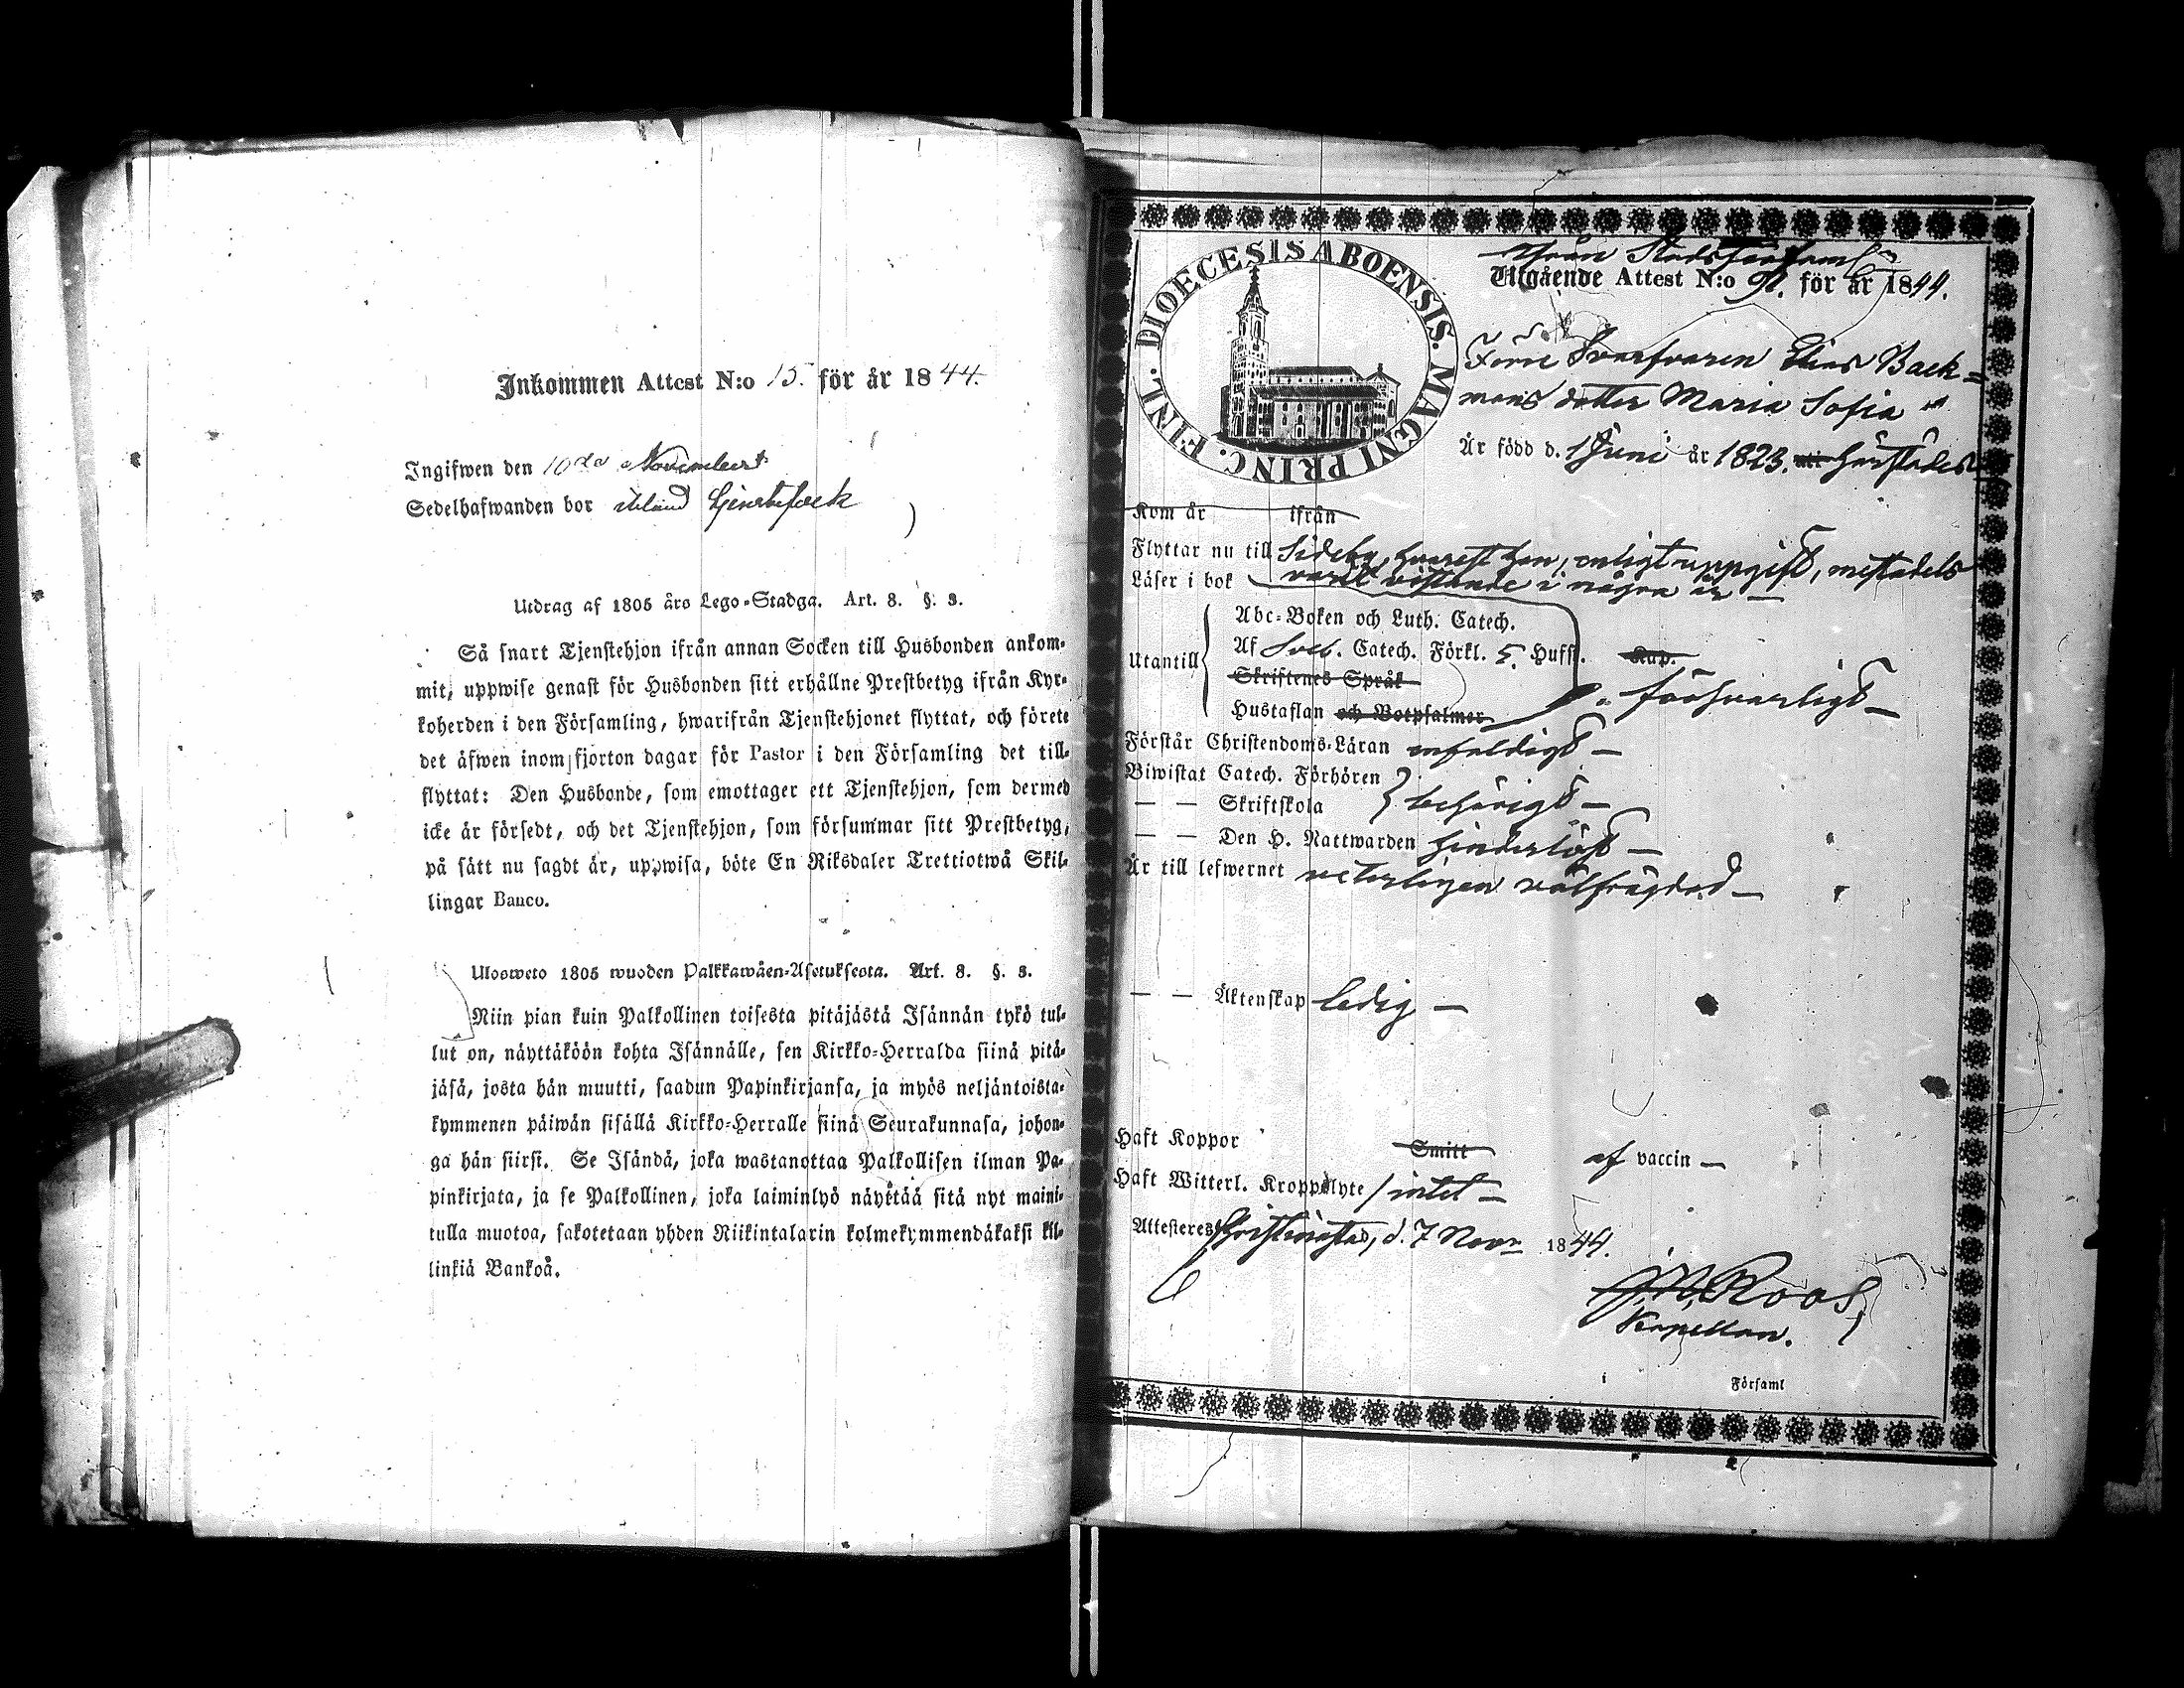 Inkommen Attest N:o 15. för år 1844.
Ingifwen den 10de November
Sedelhafwanden bor
Utdrag af 1805 års Lego-Stadga. Art. 8. §. 3.
Så snart Tjenstehjon ifrån annan Socken till Husbonden ankom-
mit, uppwise genast för Husbonden sitt erhållne Prestbetyg ifrån Kyr-
koherden i den Församling, hwarifrån Tjenstehjonet flyttat, och förete
det äfwen inom fjorton dagar för Pastor i den Församling det till-
flyttat: Den Husbonde, som emottager ett Tjenstehjon, som dermed
icke är försedt, och det Tjenstehjon, som försummar sitt Prestbetyg,
på sätt nu sagdt är, uppwisa, böte En Riksdaler Trettiotwå Skil-
lingar Banco.
Ulosweto 1805 wuoden Palkkawäen-Asetuksesta. Art. 8. §. 3.
Niin pian kuin Palkollinen toisesta pitäjästä Isännän tykö tul-
lut on, näyttäköön kohta Isännälle, sen Kirkko-Herralda siinä pitä-
jäsä, josta hän muutti, saadun Papinkirjansa, ja myös neljäntoista-
kymmenen päiwän sisällä Kirkko-Herralle siinä Seurakunnasa, johon-
ga hän siirsi. Se Isändä, joka wastanottaa Palkollisen ilman Pa-
pinkirjata, ja se Palkollinen, joka laiminlyö näyttää sitä nyt maini-
tulla muotoa, sakotetaan yhden Riikintalarin kolmekymmendäkaksi kil-
linkiä Bankoå.
DIOECESIS ABOENSIS. MAGNI PRINC. FINL.
ifrån Stadsförsaml
Utgående Attest N:o 91. för år 1844.
Förre Svarfvaren Elias Back=
mans dotter Maria Sofia
Är född d. 1 Juni år 1823. härstädes
Kom år ifrån
Flyttar nu till Sideby, hvarest hon, enligt uppgift, mestadels
varit vistande i några år —
Läser i bok
Abc-Boken och Luth. Catech.
Utantill Af Sveb. Catech. Förkl. 5. Hufst. Kap. —
Skriftenes Språk
försvarligt —
Hustaflan och Botpsalmer
Förstår Christendoms-Läran enfaldigt —
Biwistat Catech. Förhören
— — Skriftskola behörigt —
— — Den H. Nattwarden hinderlöst —
Är till lefwernet veterligen välfrägdad —
— — Äktenskap ledig —
Haft Koppor Smitt af vaccin —
Haft Witterl. Kroppslyte intet —
Attesteres Christinestad, d. 7 Novr 1844.
Roos
Kapellan.
i Församl